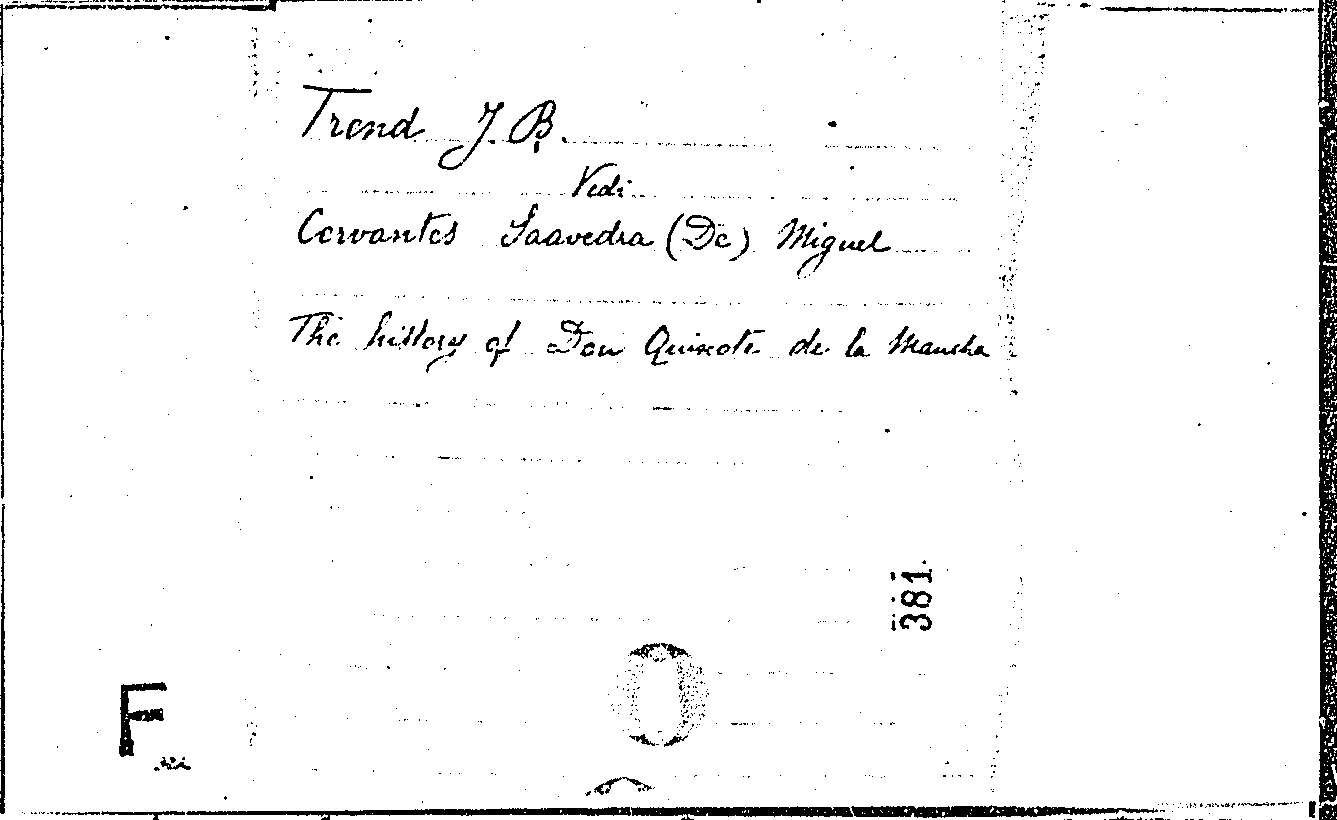 Trend J. B.
Vedi
Cervantes Saavedra (De) Miguel
The history of Don Quixote de la Mancha
381
F